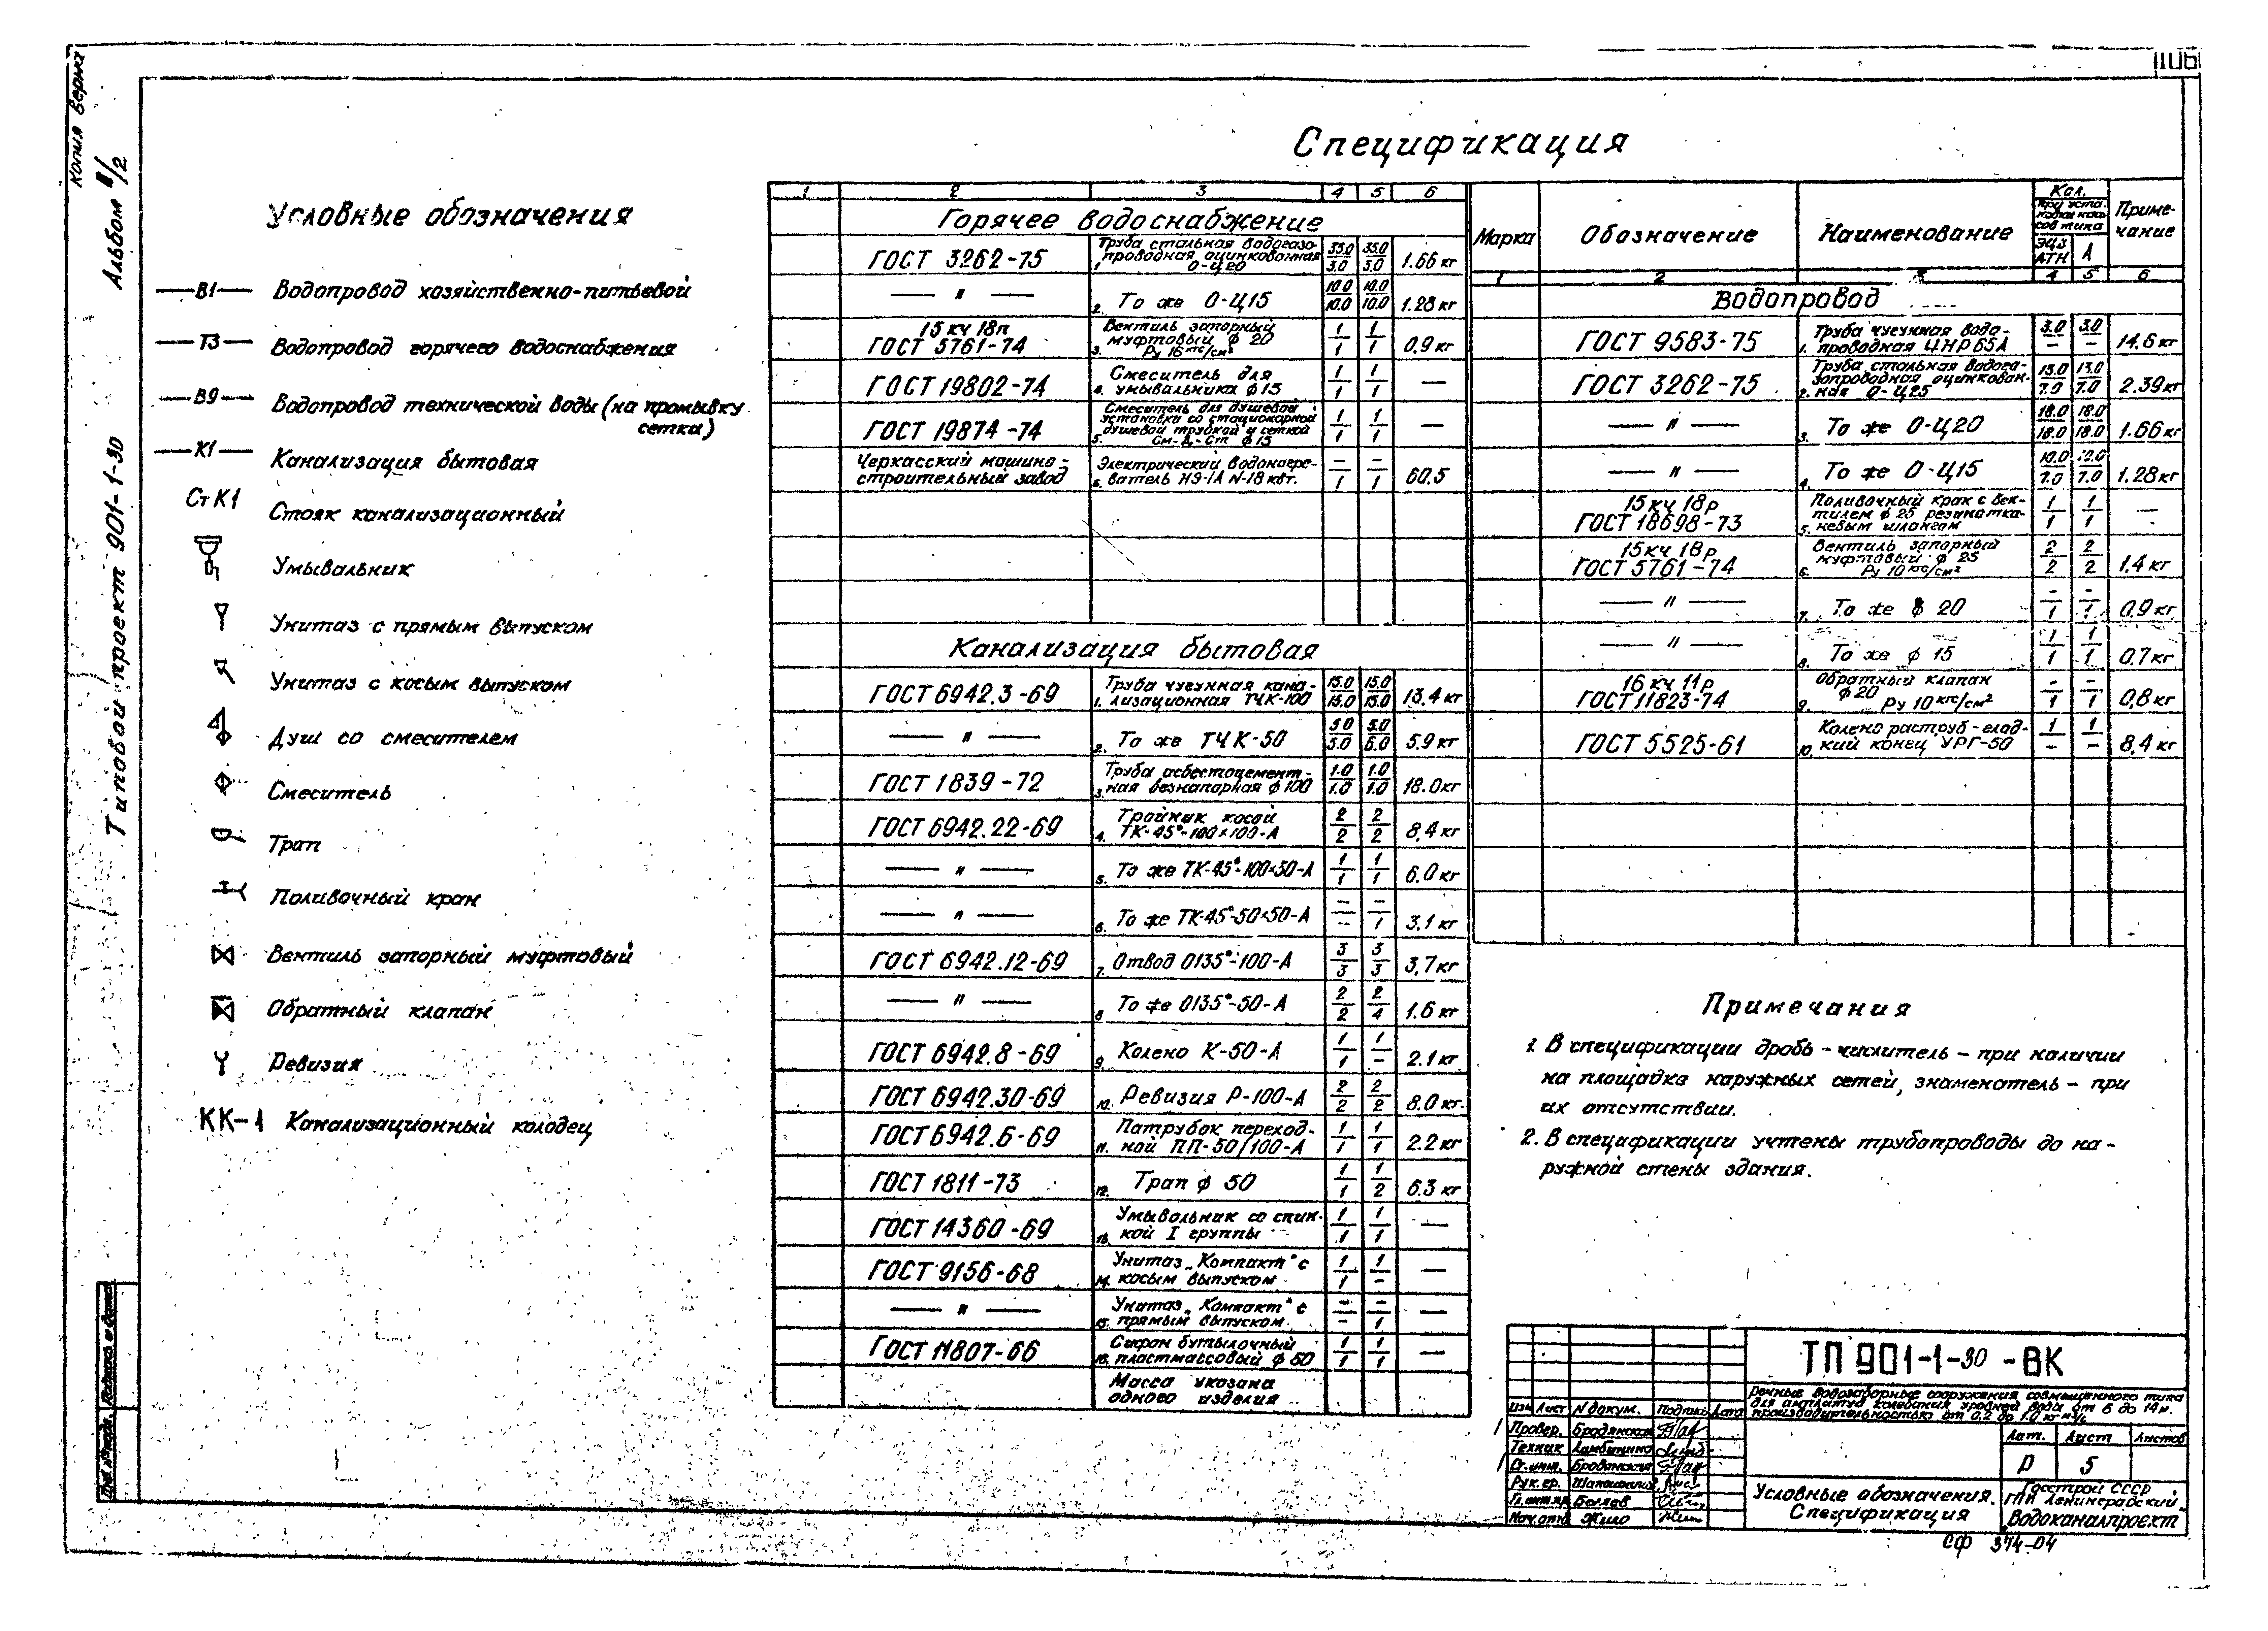 Копия верна
Альбом II/2
Типовой проект 901-1-30
Спецификация
Условные обозначения
—В1— Водопровод хозяйственно-питьевой
—Т3— Водопровод горячего водоснабжения
—В9— Водопровод технической воды (на промывку
сетки)
—К1— Канализация бытовая
СтК1 Стояк канализационный
Умывальник
Унитаз с прямым выпуском
Унитаз с косым выпуском
Душ со смесителем
Смеситель
Трап
Поливочный кран
Вентиль запорный муфтовый
Обратный клапан
Ревизия
КК-1 Канализационный колодец
1 2 3 4 5 6
Горячее водоснабжение
ГОСТ 3262-75 1. Труба стальная водогазо-
проводная оцинкованная
О-Ц20 35.0/3.0 35.0/3.0 1.66 кг
— " — 2. То же О-Ц15 10.0/10.0 10.0/10.0 1.28 кг
15 кч 18п
ГОСТ 5761-74 3. Вентиль запорный
муфтовый ф 20
Ру 16 кгс/см² 1/1 1/1 0.9 кг
ГОСТ 19802-74 4. Смеситель для
умывальника ф15 1/1 1/1 —
ГОСТ 19874-74 5. Смеситель для душевой
установки со стационарной
душевой трубкой и сеткой
См-Д-Ст ф15 1/1 1/1 —
Черкасский машино-
строительный завод 6. Электрический водонагре-
ватель НЭ-1А N-18 квт. –/1 –/1 60.5
Канализация бытовая
ГОСТ 6942.3-69 1. Труба чугунная кана-
лизационная ТЧК-100 15.0/15.0 15.0/15.0 13.4 кг
— " — 2. То же ТЧК-50 5.0/5.0 5.0/6.0 5.9 кг
ГОСТ 1839-72 3. Труба асбестоцемент-
ная безнапорная ф100 1.0/1.0 1.0/1.0 18.0 кг
ГОСТ 6942.22-69 4. Тройник косой
ТК-45°-100×100-А 2/2 2/2 8,4 кг
— " — 5. То же ТК-45°-100×50-А 1/1 1/1 6.0 кг
— " — 6. То же ТК-45°-50×50-А –/– –/1 3,1 кг
ГОСТ 6942.12-69 7. Отвод О135°-100-А 3/3 3/3 3,7 кг
— " — 8 То же О135°-50-А 2/2 2/4 1.6 кг
ГОСТ 6942.8-69 9. Колено К-50-А 1/1 1/– 2.1 кг
ГОСТ 6942.30-69 10. Ревизия Р-100-А 2/2 2/2 8.0 кг.
ГОСТ 6942.6-69 11. Патрубок переход-
ной ПП-50/100-А 1/1 1/1 2.2 кг
ГОСТ 1811-73 12. Трап ф 50 1/1 1/2 6.3 кг
ГОСТ 14360-69 13. Умывальник со спин-
кой I группы 1/1 1/1 —
ГОСТ 9156-68 14. Унитаз „Компакт" с
косым выпуском 1/1 1/– —
— " — 15. Унитаз „Компакт" с
прямым выпуском. –/– –/1 —
ГОСТ 11807-66 16. Сифон бутылочный
пластмассовый ф 50 1/1 1/1 —
Масса указана
одного изделия
Марка Обозначение Наименование Кол. Приме-
чание
При уста-
новке насо-
сов типа
ЭЦВ
АТН А
1 2 3 4 5 6
Водопровод
ГОСТ 9583-75 1. Труба чугунная водо-
проводная ЧНР 65А 3.0/– 3.0/– 14.6 кг
ГОСТ 3262-75 2. Труба стальная водога-
зопроводная оцинкован-
ная О-Ц25 13.0/7.0 13.0/7.0 2.39 кг
— " — 3. То же О-Ц20 18.0/18.0 18.0/18.0 1.66 кг
— " — 4. То же О-Ц15 10.0/7.0 10.0/7.0 1.28 кг
15 кч 18р
ГОСТ 18698-73 5. Поливочный кран с вен-
тилем ф 25 резинотка-
невым шлангом 1/1 1/1 —
15 кч 18р
ГОСТ 5761-74 6. Вентиль запорный
муфтовый ф 25
Ру 10 кгс/см² 2/2 2/2 1.4 кг
— " — 7. То же ф 20 –/1 –/1 0,9 кг.
— " — 8. То же ф 15 1/1 1/1 0.7 кг
16 кч 11р
ГОСТ 11823-74 9. Обратный клапан
ф20 Ру 10 кгс/см² –/1 –/1 0,8 кг
ГОСТ 5525-61 10. Колено раструб-глад-
кий конец УРГ-50 1/– 1/– 8,4 кг
Примечания
1. В спецификации дробь – числитель – при наличии
на площадке наружных сетей, знаменатель – при
их отсутствии.
2. В спецификации учтены трубопроводы до на-
ружной стены здания.
ТП 901-1-30 -ВК
Речные водозаборные сооружения совмещенного типа
для амплитуд колебания уровней воды от 6 до 14м.
производительностью от 0,2 до 1.0 м³/с
Изм Лист N докум. Подпись Дата
Провер. Бродянская
Техник
Ст.инж. Бродянская
Рук.гр.
Гл.инж.пр Беляев
Нач.отд Жило
Лит. Лист Листов
Р 5
Условные обозначения.
Спецификация
Госстрой СССР
ГПИ Ленинградский
Водоканалпроект
СФ 374-04
Инв. № подл. Подпись и дата